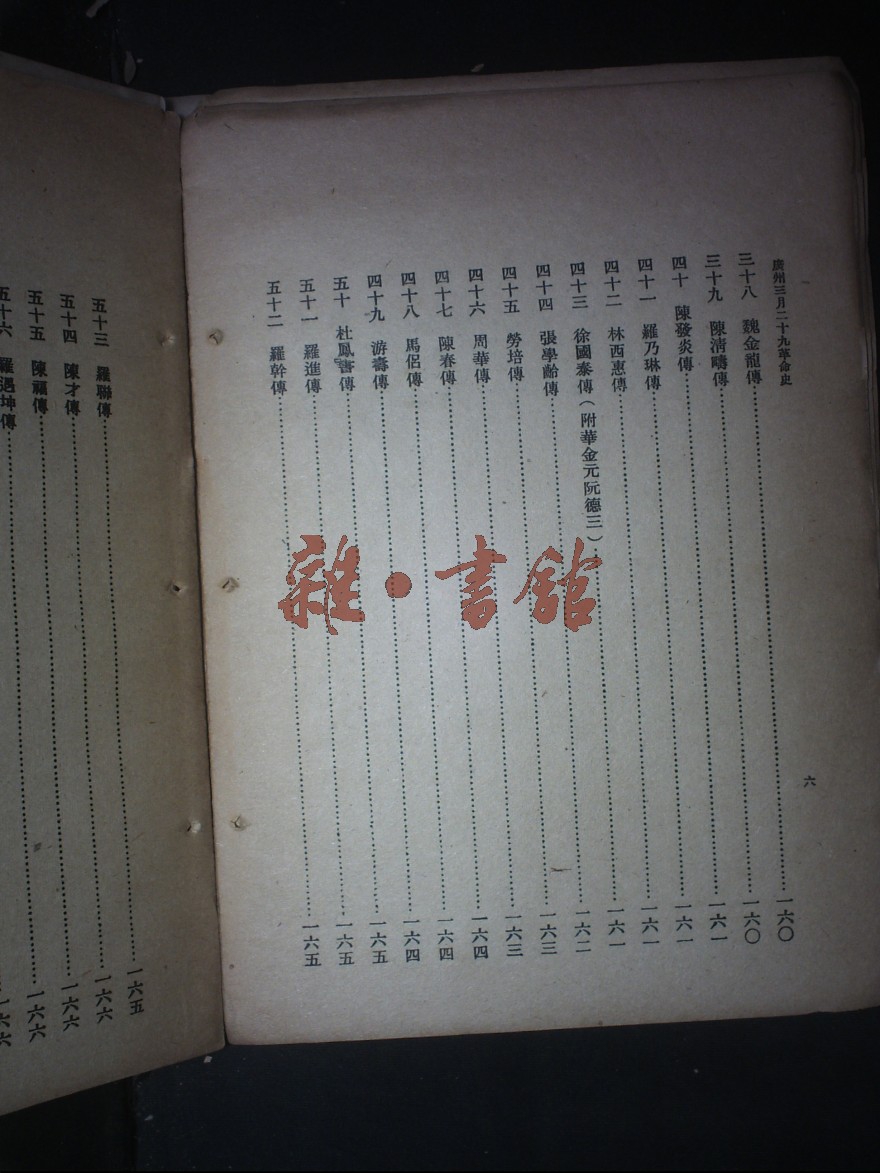 廣州三月二十九革命史
六
三十八 魏金龍傳……一六〇
三十九 陳清疇傳……一六〇
四十 陳發炎傳……一六一
四十一 羅乃琳傳……一六一
四十二 林西惠傳……一六一
四十三 徐國泰傳(附華金元阮德三)……一六一
四十四 張學齡傳……一六二
四十五 勞培傳……一六三
四十六 周華傳……一六三
四十七 陳春傳……一六四
四十八 馬侶傳……一六四
四十九 游壽傳……一六四
五十 杜鳳書傳……一六五
五十一 羅進傳……一六五
五十二 羅幹傳……一六五
五十三 羅聯傳……一六五
五十四 陳才傳……一六六
五十五 陳福傳……一六六
五十六 羅遇坤傳……一六六
一六六
雜·書館